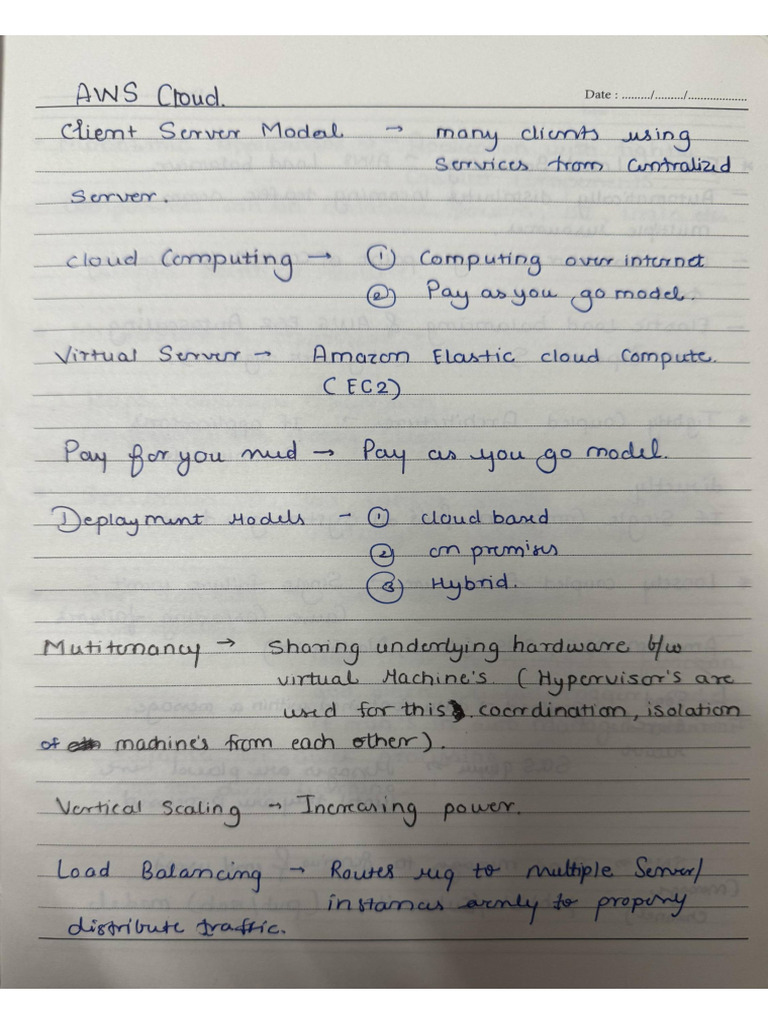 AWS Cloud.
Date : ........./........./..................
Client Server Model → many clients using
services from centralized
server.
Cloud Computing → ① Computing over internet
② Pay as you go model.
Virtual Server → Amazon Elastic cloud compute.
(EC2)
Pay for you need → Pay as you go model.
Deployment Models - ① cloud based
② on premises
③ Hybrid.
Mutitenancy → Sharing underlying hardware b/w
virtual Machine's. (Hypervisor's are
used for this, coordination, isolation
of machine's from each other).
Vertical Scaling → Increasing power.
Load Balancing → Routes req to multiple Server/
instances evenly to propery
distribute traffic.